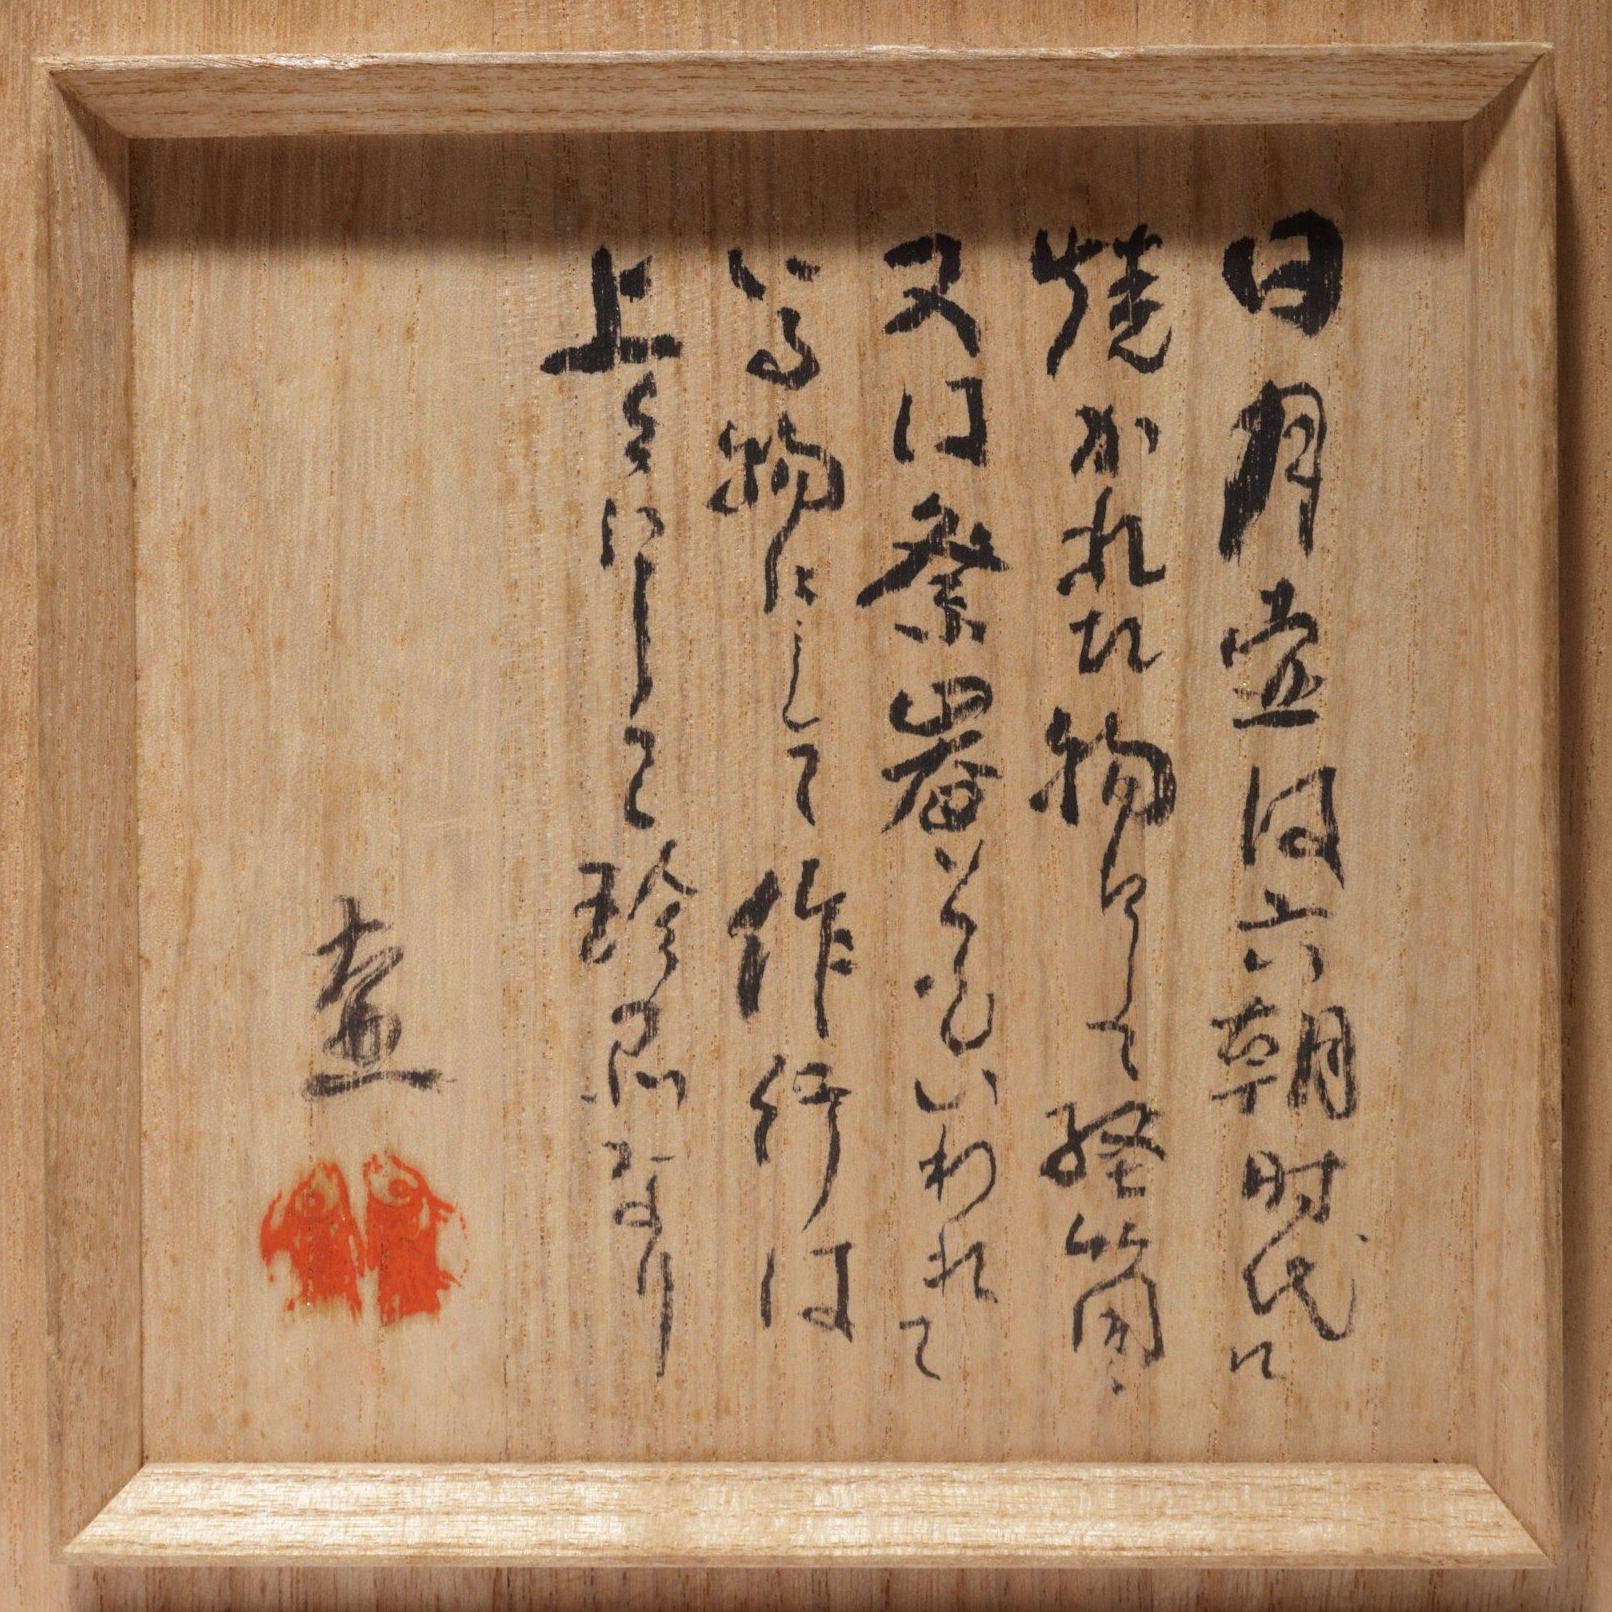 日月壺は六朝時代に
焼かれた物にして経筒
又は祭器ともいわれて
いる物にして作行は
上々にして珍品なり
壷